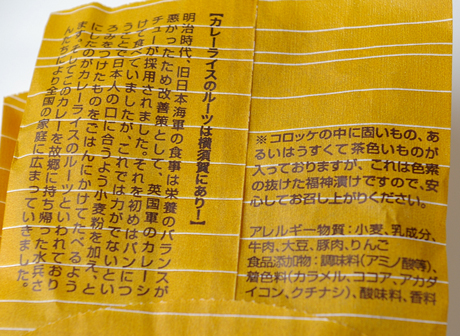 【カレーライスのルーツは横須賀にあり！】
明治時代、旧日本海軍の食事は栄養のバランスが
悪かったため改善策として、英国軍のカレーシ
チューが採用されました。それを初めはパンにつ
けて食べていましたが、これでは力がでないとい
うことで日本人の口に合うよう小麦粉を加え、と
ろみをつけたものをごはんにかけてたべるよう
にしたのがカレーライスのルーツといわれており
ます。そしてこのカレーを故郷に持ち帰った水兵さ
んたちにより全国の家庭に広まっていきました。
※コロッケの中に固いもの、あ
るいはうすくて茶色いものが
入っておりますが、これは色素
の抜けた福神漬けですので、安
心してお召し上がりください。
アレルギー物質：小麦、乳成分、
牛肉、大豆、豚肉、りんご
食品添加物：調味料（アミノ酸等）、
着色料（カラメル、ココア、アカダ
イコン、クチナシ）、酸味料、香料